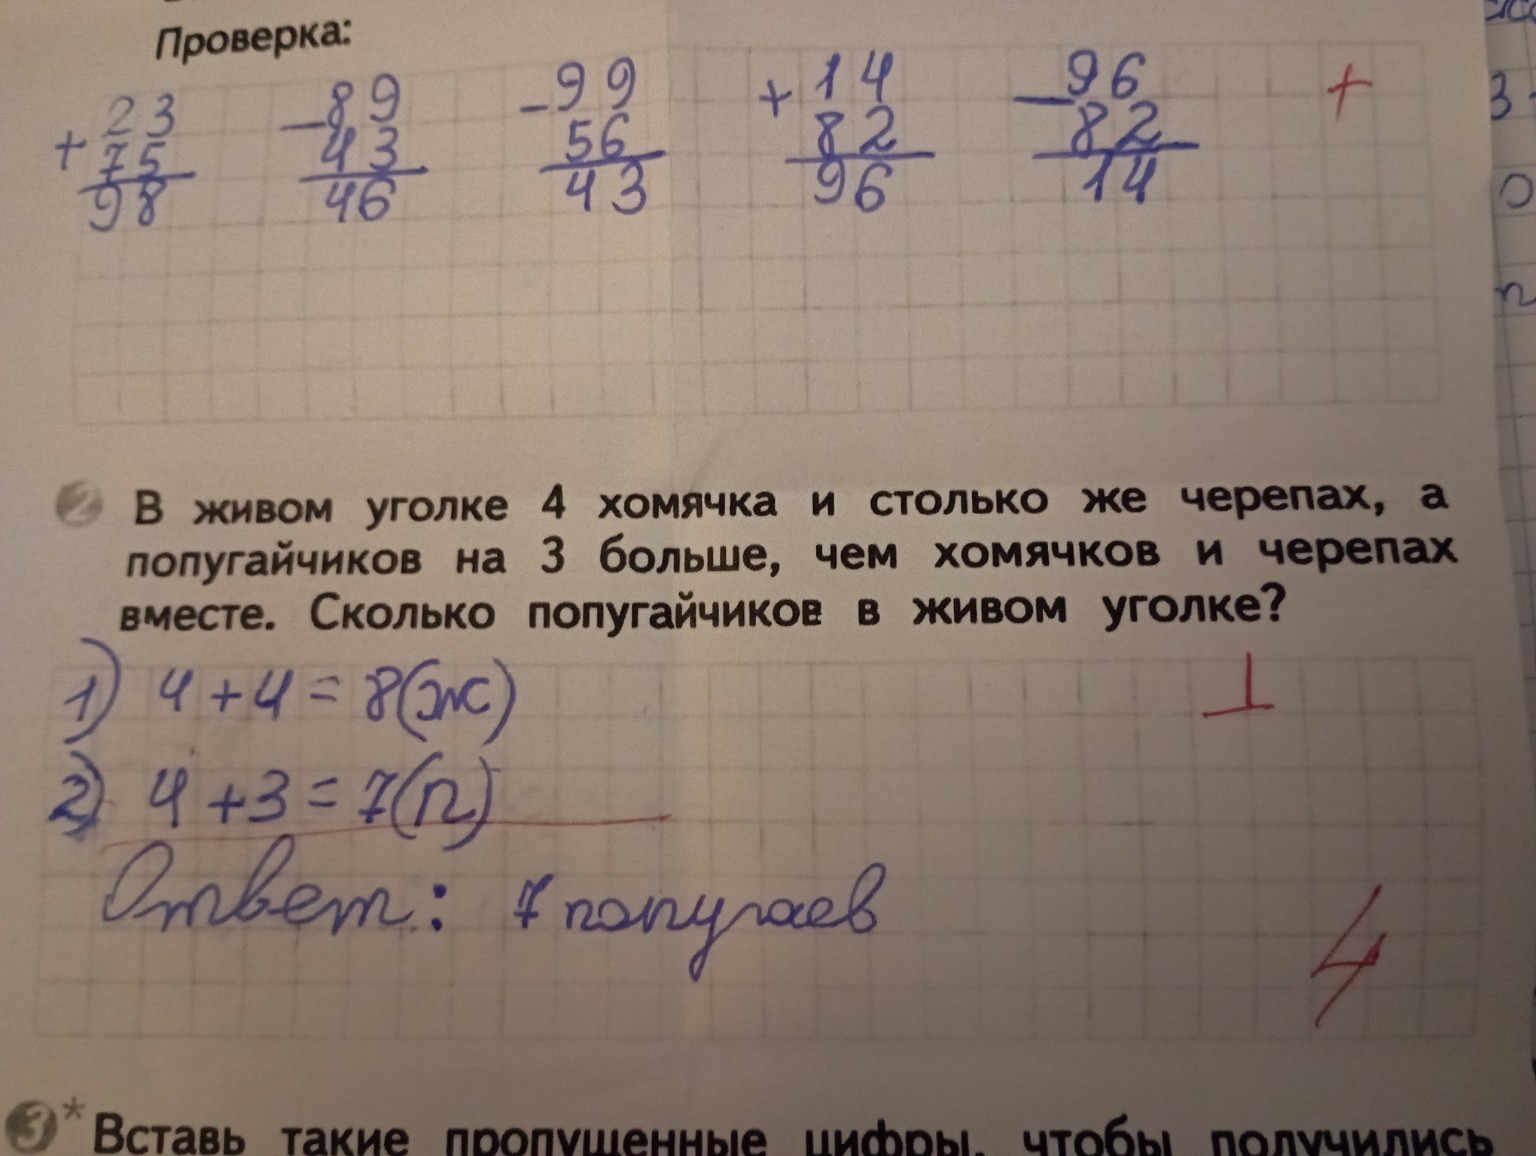 Проверка:
23 89 99 14 96 +
+ 75 − 43 − 56 + 82 − 82
98 46 43 96 14
2 В живом уголке 4 хомячка и столько же черепах, а
попугайчиков на 3 больше, чем хомячков и черепах
вместе. Сколько попугайчиков в живом уголке?
1) 4 + 4 = 8 (ж)
2) 4 + 3 = 7 (п)
Ответ: 7 попугаев
4
3* Вставь такие пропущенные цифры, чтобы получились